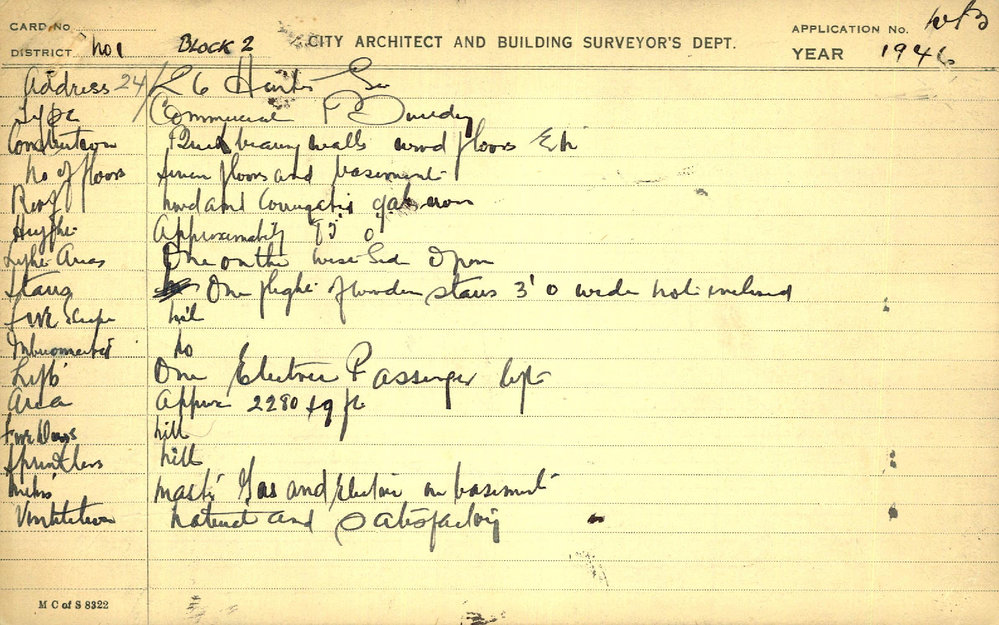 CARD No
DISTRICT No 1 BLOCK 2 CITY ARCHITECT AND BUILDING SURVEYOR'S DEPT. APPLICATION No.
YEAR 1946
Address 24/26 Hunter St
Type Commercial Building
Construction Brick bearing walls wood floors Etc
No of floors seven floors and basement
Roof wood and Corrugated galv iron
Height Approximately 85' 0"
Light Areas One on the West Side Open
Stairs One flight of wooden stairs 3' 0 wide not enclosed
Fire Escape Nil
No
Lifts One Electric Passenger lift
Area Approx 2280 sq ft
Fire Doors Nill
Sprinklers Nill
Gas and Electric in basement
Ventilation Natural and Satisfactory
M C of S 8322